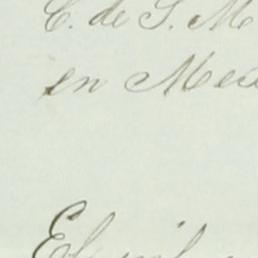 C. de S. M
en Me
El